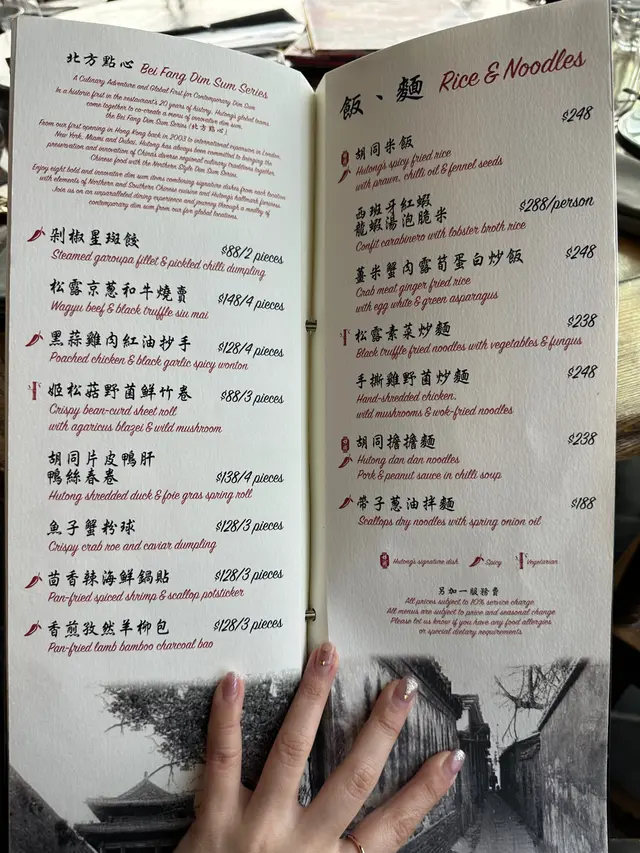 北方點心 Bei Fang Dim Sum Series
A Culinary Adventure and Global First for Contemporary Dim Sum
In a historic first in the restaurant's 20 years of history, Hutong's global teams
come together to co-create a menu of innovative dim sum,
the Bei Fang Dim Sum Series (北方點心).
From our first opening in Hong Kong back in 2003 to international expansion in London,
New York, Miami and Dubai, Hutong has always been committed to bringing the
preservation and innovation of China's diverse regional culinary traditions together,
Chinese food with the Northern-Style Dim Sum Series.
Enjoy eight bold and innovative dim sum items combining signature dishes from each location
with elements of Northern and Southern Chinese cuisine and Hutong's hallmark finesse.
Join us on an unparalleled dining experience and journey through a medley of
contemporary dim sum from our five global locations.
剁椒星斑餃 $88/2 pieces
Steamed garoupa fillet & pickled chilli dumpling
松露京蔥和牛燒賣 $148/4 pieces
Wagyu beef & black truffle siu mai
黑蒜雞肉紅油抄手 $128/4 pieces
Poached chicken & black garlic spicy wonton
姬松菇野菌鮮竹卷 $88/3 pieces
Crispy bean-curd sheet roll
with agaricus blazei & wild mushroom
胡同片皮鴨肝
鴨絲春卷 $138/4 pieces
Hutong shredded duck & foie gras spring roll
魚子蟹粉球 $128/3 pieces
Crispy crab roe and caviar dumpling
茴香辣海鮮鍋貼 $128/3 pieces
Pan-fried spiced shrimp & scallop potsticker
香煎孜然羊柳包 $128/3 pieces
Pan-fried lamb bamboo charcoal bao
飯、麵 Rice & Noodles
$248
胡同米飯
Hutong's spicy fried rice
with prawn, chilli oil & fennel seeds
西班牙紅蝦
龍蝦湯泡脆米 $288/person
Confit carabinero with lobster broth rice
薑米蟹肉露筍蛋白炒飯 $248
Crab meat ginger fried rice
with egg white & green asparagus
松露素菜炒麵 $238
Black truffle fried noodles with vegetables & fungus
手撕雞野菌炒麵 $248
Hand-shredded chicken,
wild mushrooms & wok-fried noodles
胡同擔擔麵 $238
Hutong dan dan noodles
Pork & peanut sauce in chilli soup
帶子蔥油拌麵 $188
Scallops dry noodles with spring onion oil
Hutong's signature dish Spicy Vegetarian
另加一服務費
All prices subject to 10% service charge.
All menus are subject to price and seasonal change.
Please let us know if you have any food allergies
or special dietary requirements.